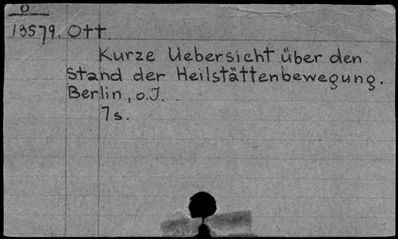 O
13579. Ott.
Kurze Uebersicht über den
Stand der Heilstättenbewegung.
Berlin, o.J.
7 s.